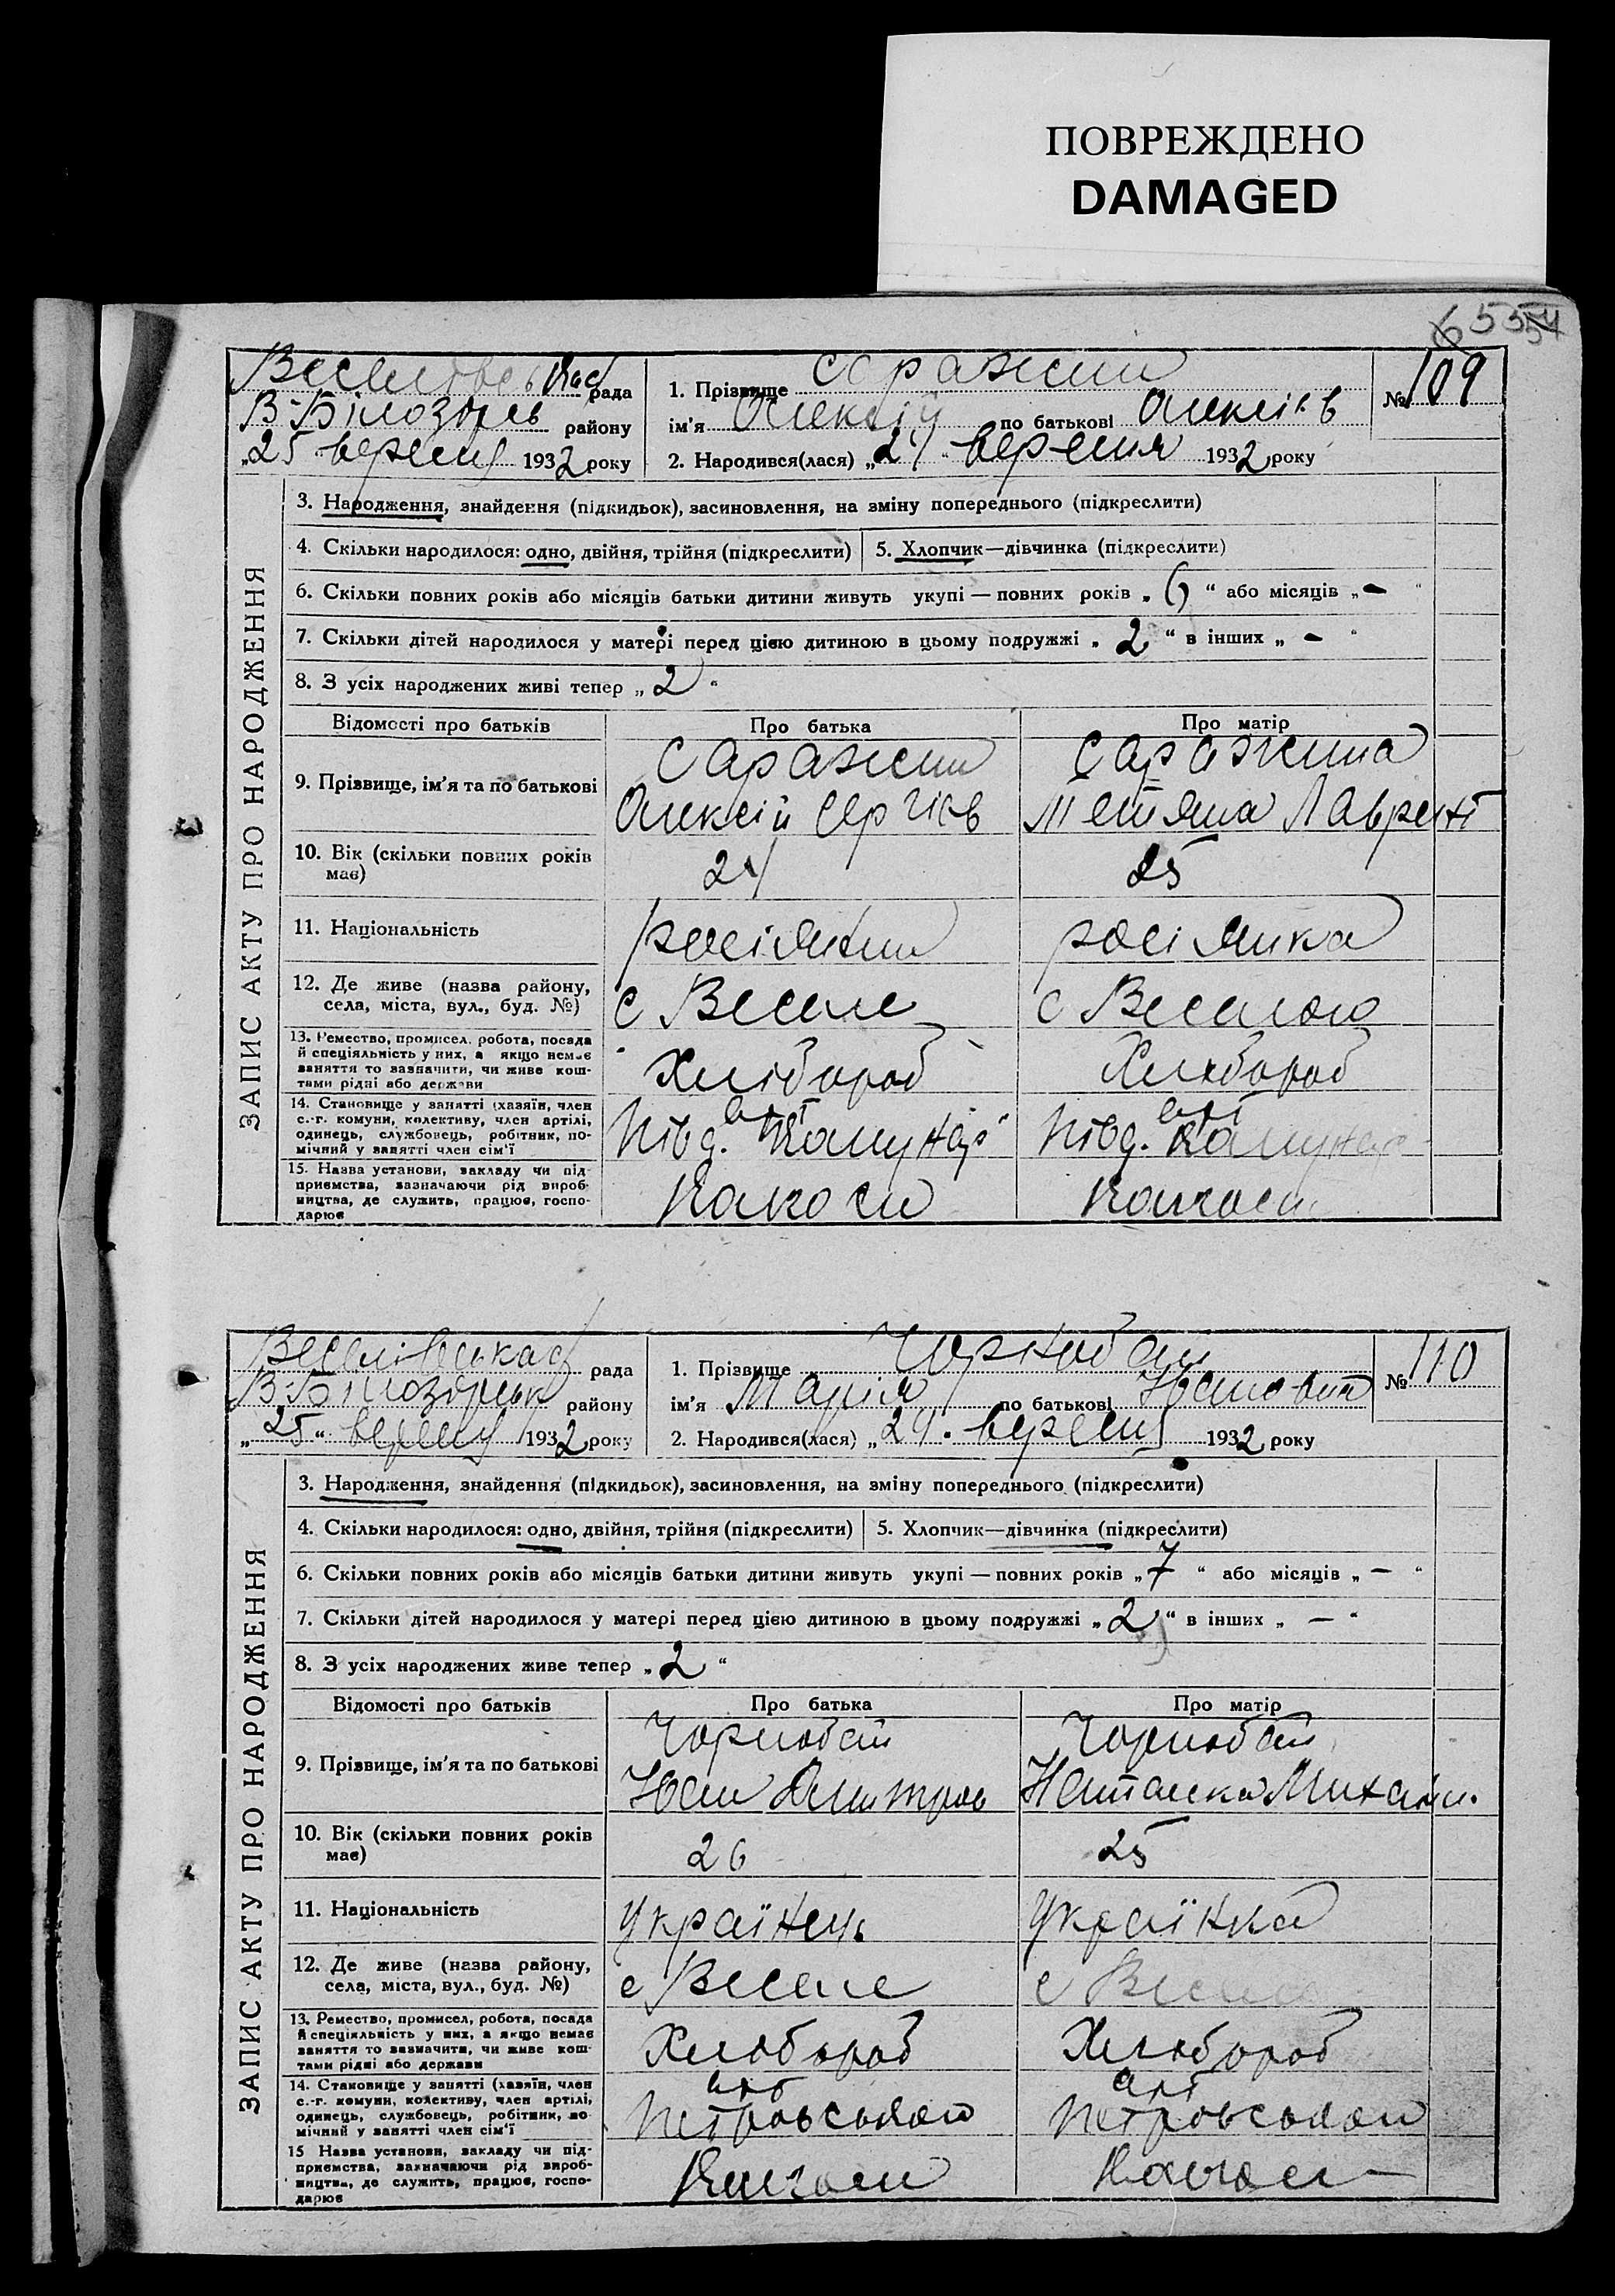 ПОВРЕЖДЕНО
DAMAGED
55
Веселівськ рада
В-Білозірсь району
„25 вересня 1932 року
1. Прізвище Саражин
ім'я Олексій по батькові Олексіїв
№ 109
2. Народився(лася) „24 вересня 1932 року
ЗАПИС АКТУ ПРО НАРОДЖЕННЯ
3. Народження, знайдення (підкидьок), засиновлення, на зміну попереднього (підкреслити)
4. Скільки народилося: одно, двійня, трійня (підкреслити) 5. Хлопчик—дівчинка (підкреслити)
6. Скільки повних років або місяців батьки дитини живуть укупі — повних років „ 6 “ або місяців „ - “
7. Скільки дітей народилося у матері перед цією дитиною в цьому подружжі „ 2 “ в інших „ - “
8. З усіх народжених живі тепер „ 2 “
Відомості про батьків Про батька Про матір
9. Прізвище, ім'я та по батькові
Саражин Саражина
Олексій Сергієв Тетяна Лаврент
10. Вік (скільки повних років має) 24 25
11. Національність росіянин росіянка
12. Де живе (назва району, села, міста, вул., буд. №) с Веселе с Веселою
13. Ремество, промисел, робота, посада й спеціяльність у них, а якщо немає заняття то зазначити, чи живе коштами рідні або держави
Хлібороб Хлібороб
14. Становище у занятті (хазяїн, член с.-г. комуни, колективу, член артілі, одинець, службовець, робітник, помічний у занятті член сім'ї
арт арт
Півд. Комунар Півд. Комунар
15. Назва установи, закладу чи підприємства, зазначаючи рід виробництва, де служить, працює, господарює
Колгосп Колгосп
Веселівська рада
В-Білозірськ району
„25“ вересня 1932 року
1. Прізвище Чорнобай
ім'я Марія по батькові Іванівна
№ 110
2. Народився(лася) „24. вересня 1932 року
ЗАПИС АКТУ ПРО НАРОДЖЕННЯ
3. Народження, знайдення (підкидьок), засиновлення, на зміну попереднього (підкреслити)
4. Скільки народилося: одно, двійня, трійня (підкреслити) 5. Хлопчик—дівчинка (підкреслити)
6. Скільки повних років або місяців батьки дитини живуть укупі — повних років „ 7 “ або місяців „ — “
7. Скільки дітей народилося у матері перед цією дитиною в цьому подружжі „ 2 “ в інших „ — “
8. З усіх народжених живе тепер „ 2 “
Відомості про батьків Про батька Про матір
9. Прізвище, ім'я та по батькові
Чорнобай Чорнобай
Іван Дмитров Наталка Михайл.
10. Вік (скільки повних років має) 26 25
11. Національність Українець Українка
12. Де живе (назва району, села, міста, вул., буд. №) с Веселе с Веселе
13. Ремество, промисел, робота, посада й спеціяльність у них, а якщо немає заняття то зазначити, чи живе коштами рідні або держави
Хлібороб Хлібороб
14. Становище у занятті (хазяїн, член с.-г. комуни, колективу, член артілі, одинець, службовець, робітник, помічний у занятті член сім'ї
арт арт
Петровського Петровського
15 Назва установи, закладу чи підприємства, зазначаючи рід виробництва, де служить, працює, господарює
Колгосп Колгосп